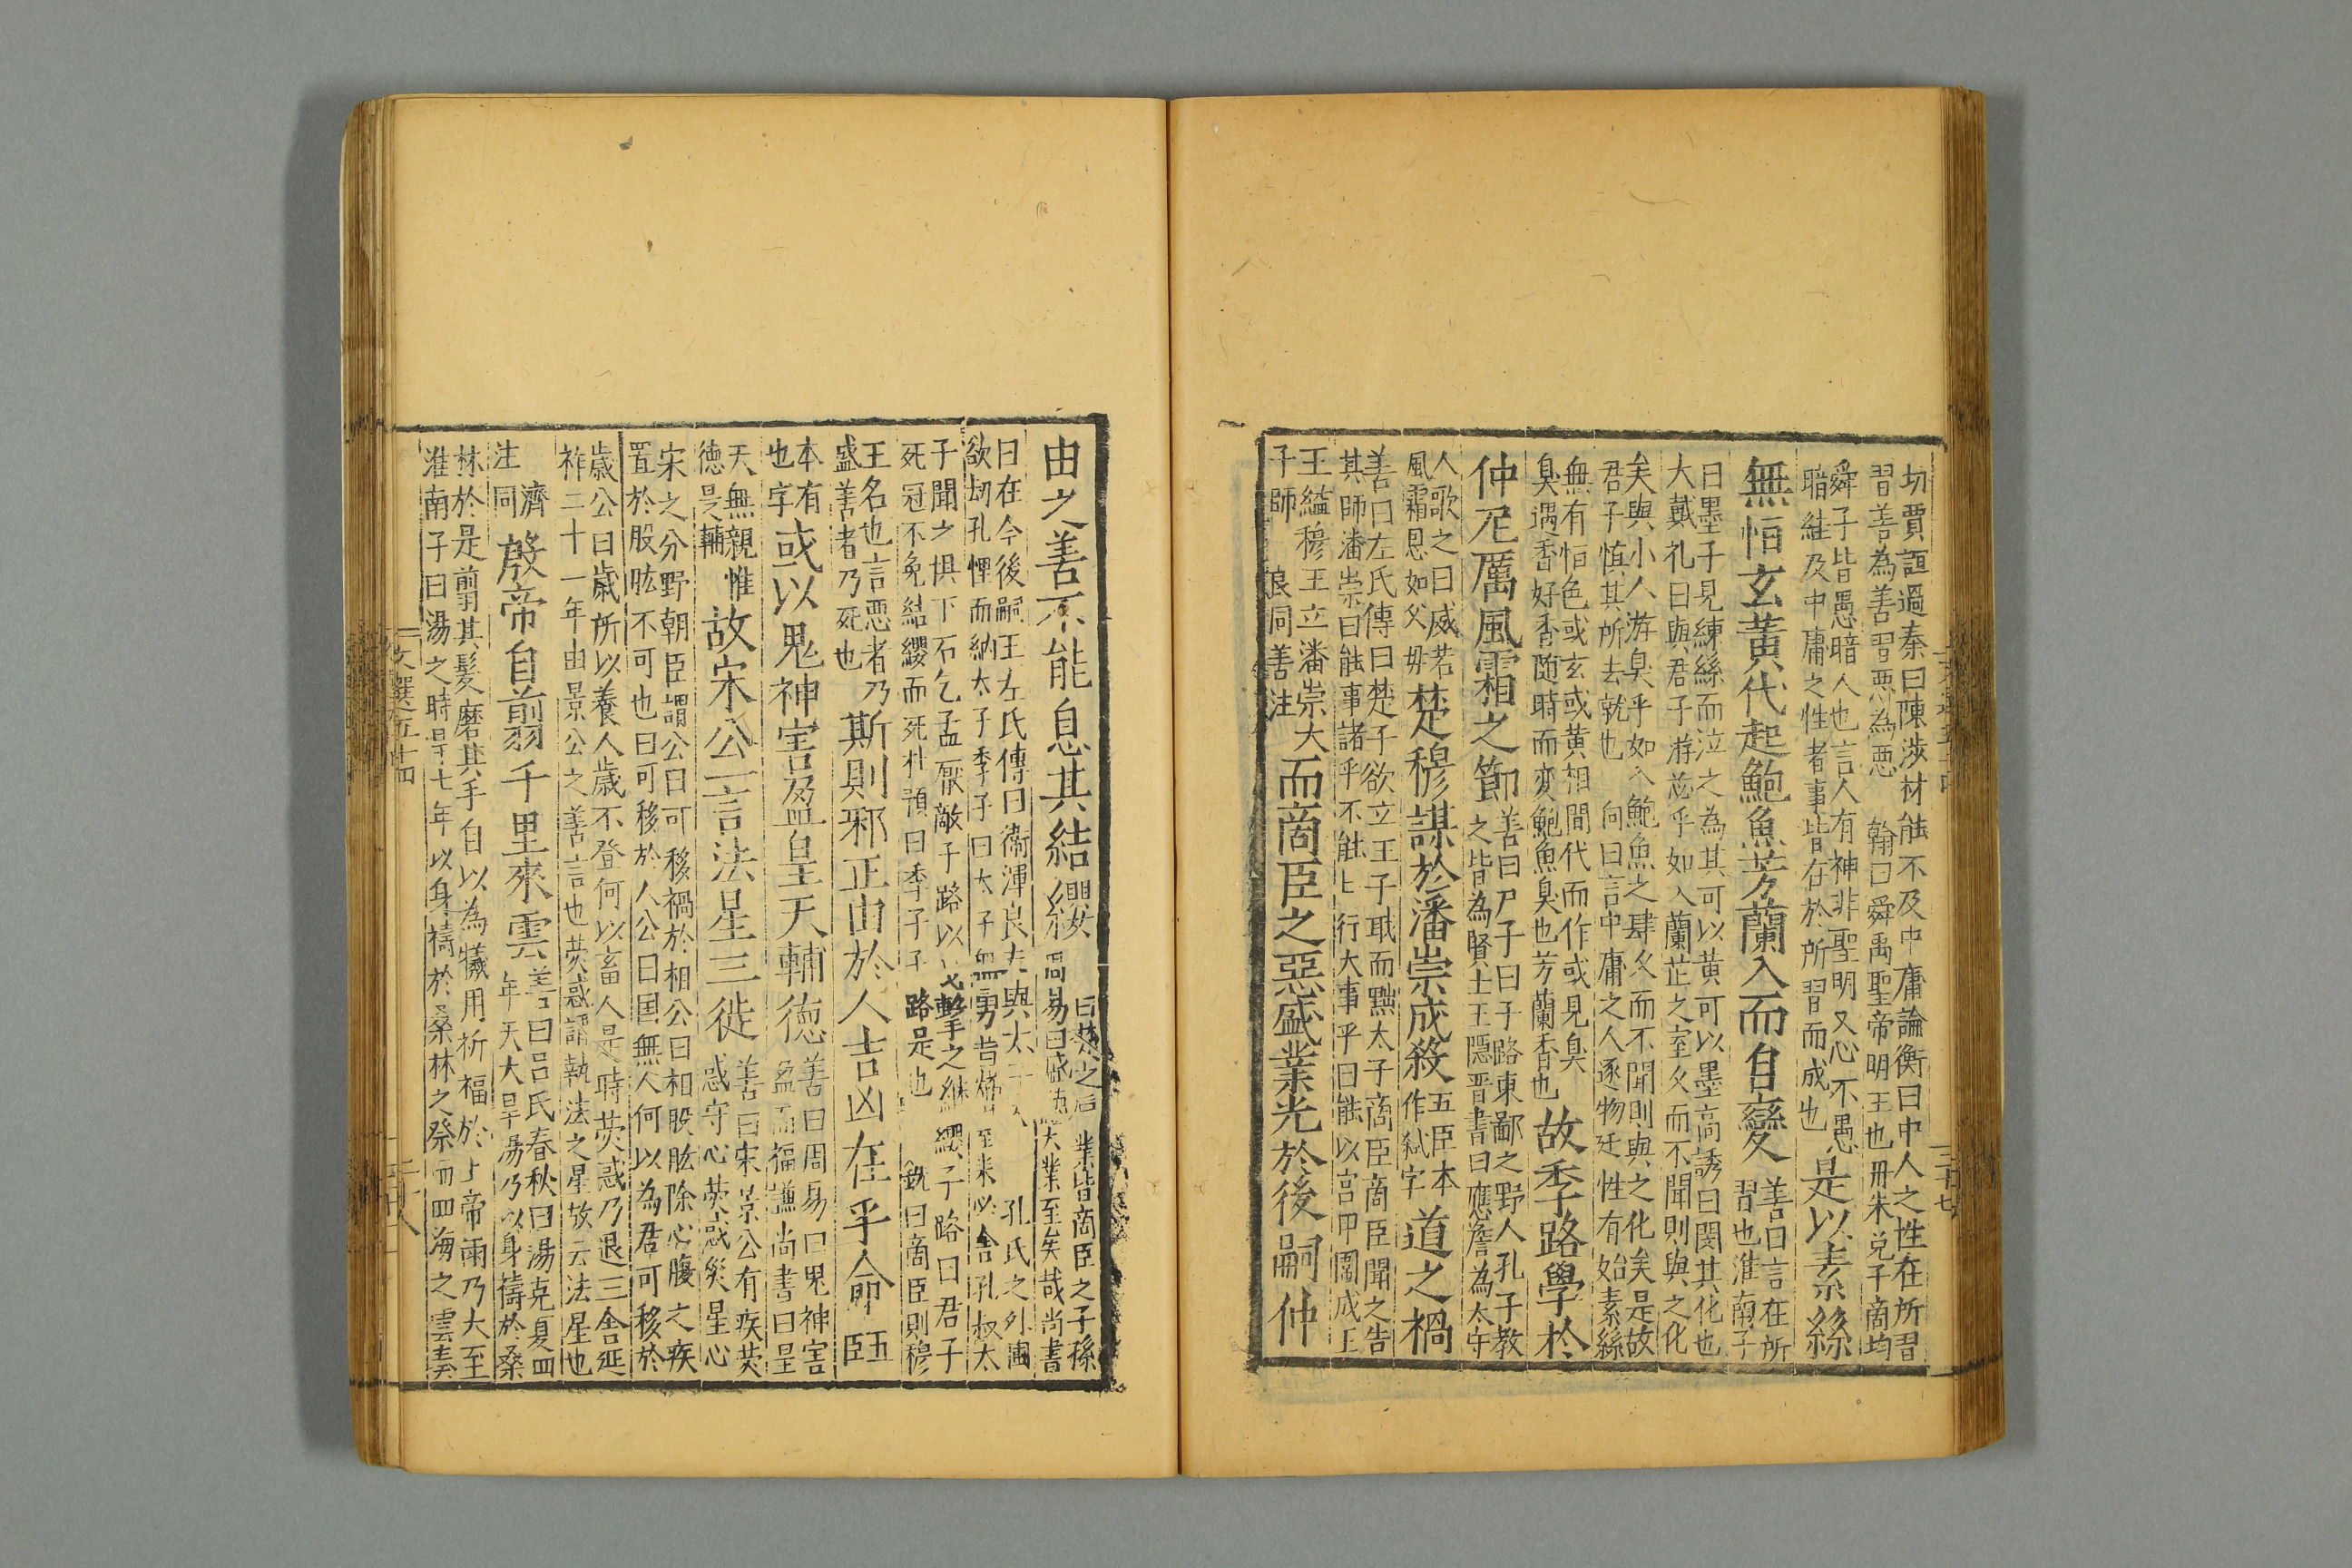 切賈誼過秦曰陳涉材能不及中庸論衡曰中人之性在所習
習善為善習惡為惡 翰曰舜禹聖帝明王也丹朱兌子商均
舜子皆愚暗人也言人有神非聖明又心不愚
暗絓及中庸之性者事皆在於所習而成也
是以素絲
無恒玄黃代起鮑魚芳蘭入而自變
善曰言在所
習也淮南子
曰墨子見練絲而泣之為其可以黃可以墨高誘曰閔其化也
大戴礼曰與君子游苾乎如入蘭芷之室久而不聞則與之化
矣與小人游臭乎如入鮑魚之肆久而不聞則與之化矣是故
君子慎其所去就也 向曰言中庸之人逐物迁性有始素絲
無有恒色或玄或黃相間代而作或見臭
臭遇香好香随時而変鮑魚臭也芳蘭香也
故季路學於
仲尼厲風霜之節
善曰尸子曰子路東鄙之野人孔子教
之皆為賢士王隱晋書曰應詹為太守
人歌之曰威若
風霜恩如父毋
楚穆謀於潘崇成殺
五臣本
作弒字
道之禍
善曰左氏傳曰楚子欲立王子職而黜太子商臣商臣聞之告
其師潘崇曰能事諸乎不能 行大事乎曰能以宮甲圍成王
王縊穆王立潘崇大
子師 良同善注
而商臣之惡盛業光於後嗣仲
由之善不能息其結纓
曰楚之后 業皆商臣之子孫
周易曰盛德大業至矣哉尚書
曰在今後嗣王左氏傳曰衛渾良夫與太子入 孔氏之外圃
欲刼孔悝而納太子季子曰太子無勇若燔 至半必舍孔叔太
子聞之惧下石乞孟厭敵子路以戈擊之絶纓子路曰君子
死冠不免結纓而死杜預曰季子子路是也 銑曰商臣則穆
王名也言惡者乃
盛善者乃死也
斯則邪正由於人吉凶在乎命
五臣
本有
也字
或以鬼神害盈皇天輔德
善曰周易曰鬼神害
盈而福謙尚書曰皇
天無親惟
德是輔
故宋公一言法星三徙
善曰宋景公有疾熒
惑守心熒惑災星心
宋之分野朝臣謂公曰可移禍於相公曰相股肱除心腹之疾
置於股肱不可也曰可移於人公曰国無人何以為君可移於
歲公曰歲所以養人歲不登何以畜人是時熒惑乃退三舍延
祚二十一年由景公之善言也熒惑謂執法之星故云法星也
濟
注同
殷帝自翦千里來雲
善曰呂氏春秋曰湯克夏四
年天大旱湯乃以身禱於桑
林於是翦其髪磨其手自以為犧用祈福於上帝雨乃大至
淮南子曰湯之時旱七年以身禱於桑林之祭而四海之雲湊
文選五十四
三十八